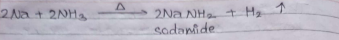 2Na + 2NH₃ —Δ→ 2NaNH₂ + H₂ ↑
sodamide